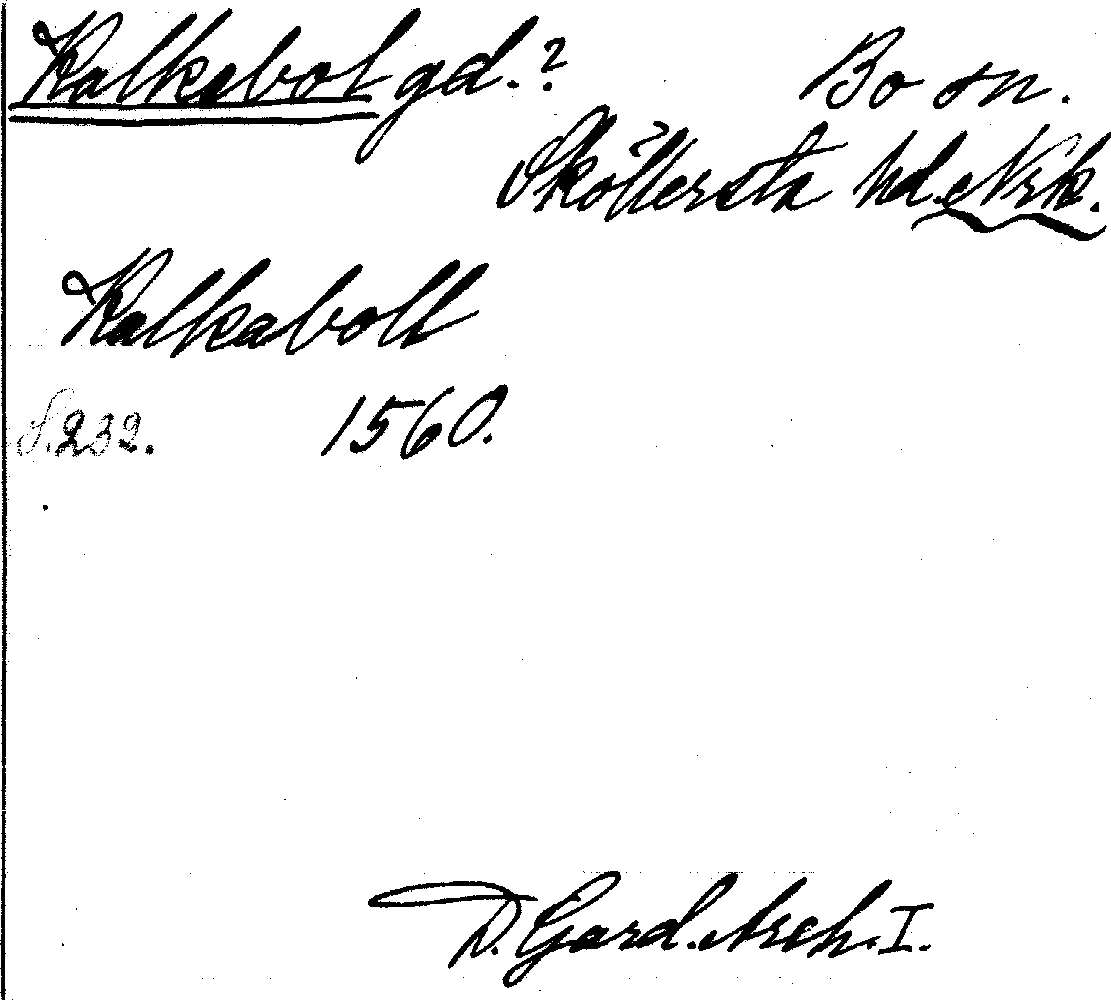 Kalkabol gd.? Bo sn.
Sköllersta hd. Nrk.
Kalkaboll
S. 232. 1560.
D. Gard. Arch. I.